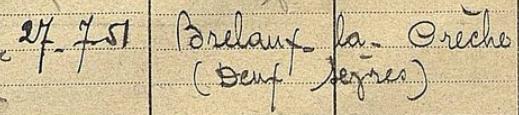 27-7-51 Brelaux-la-Crèche
(Deux Sèvres)